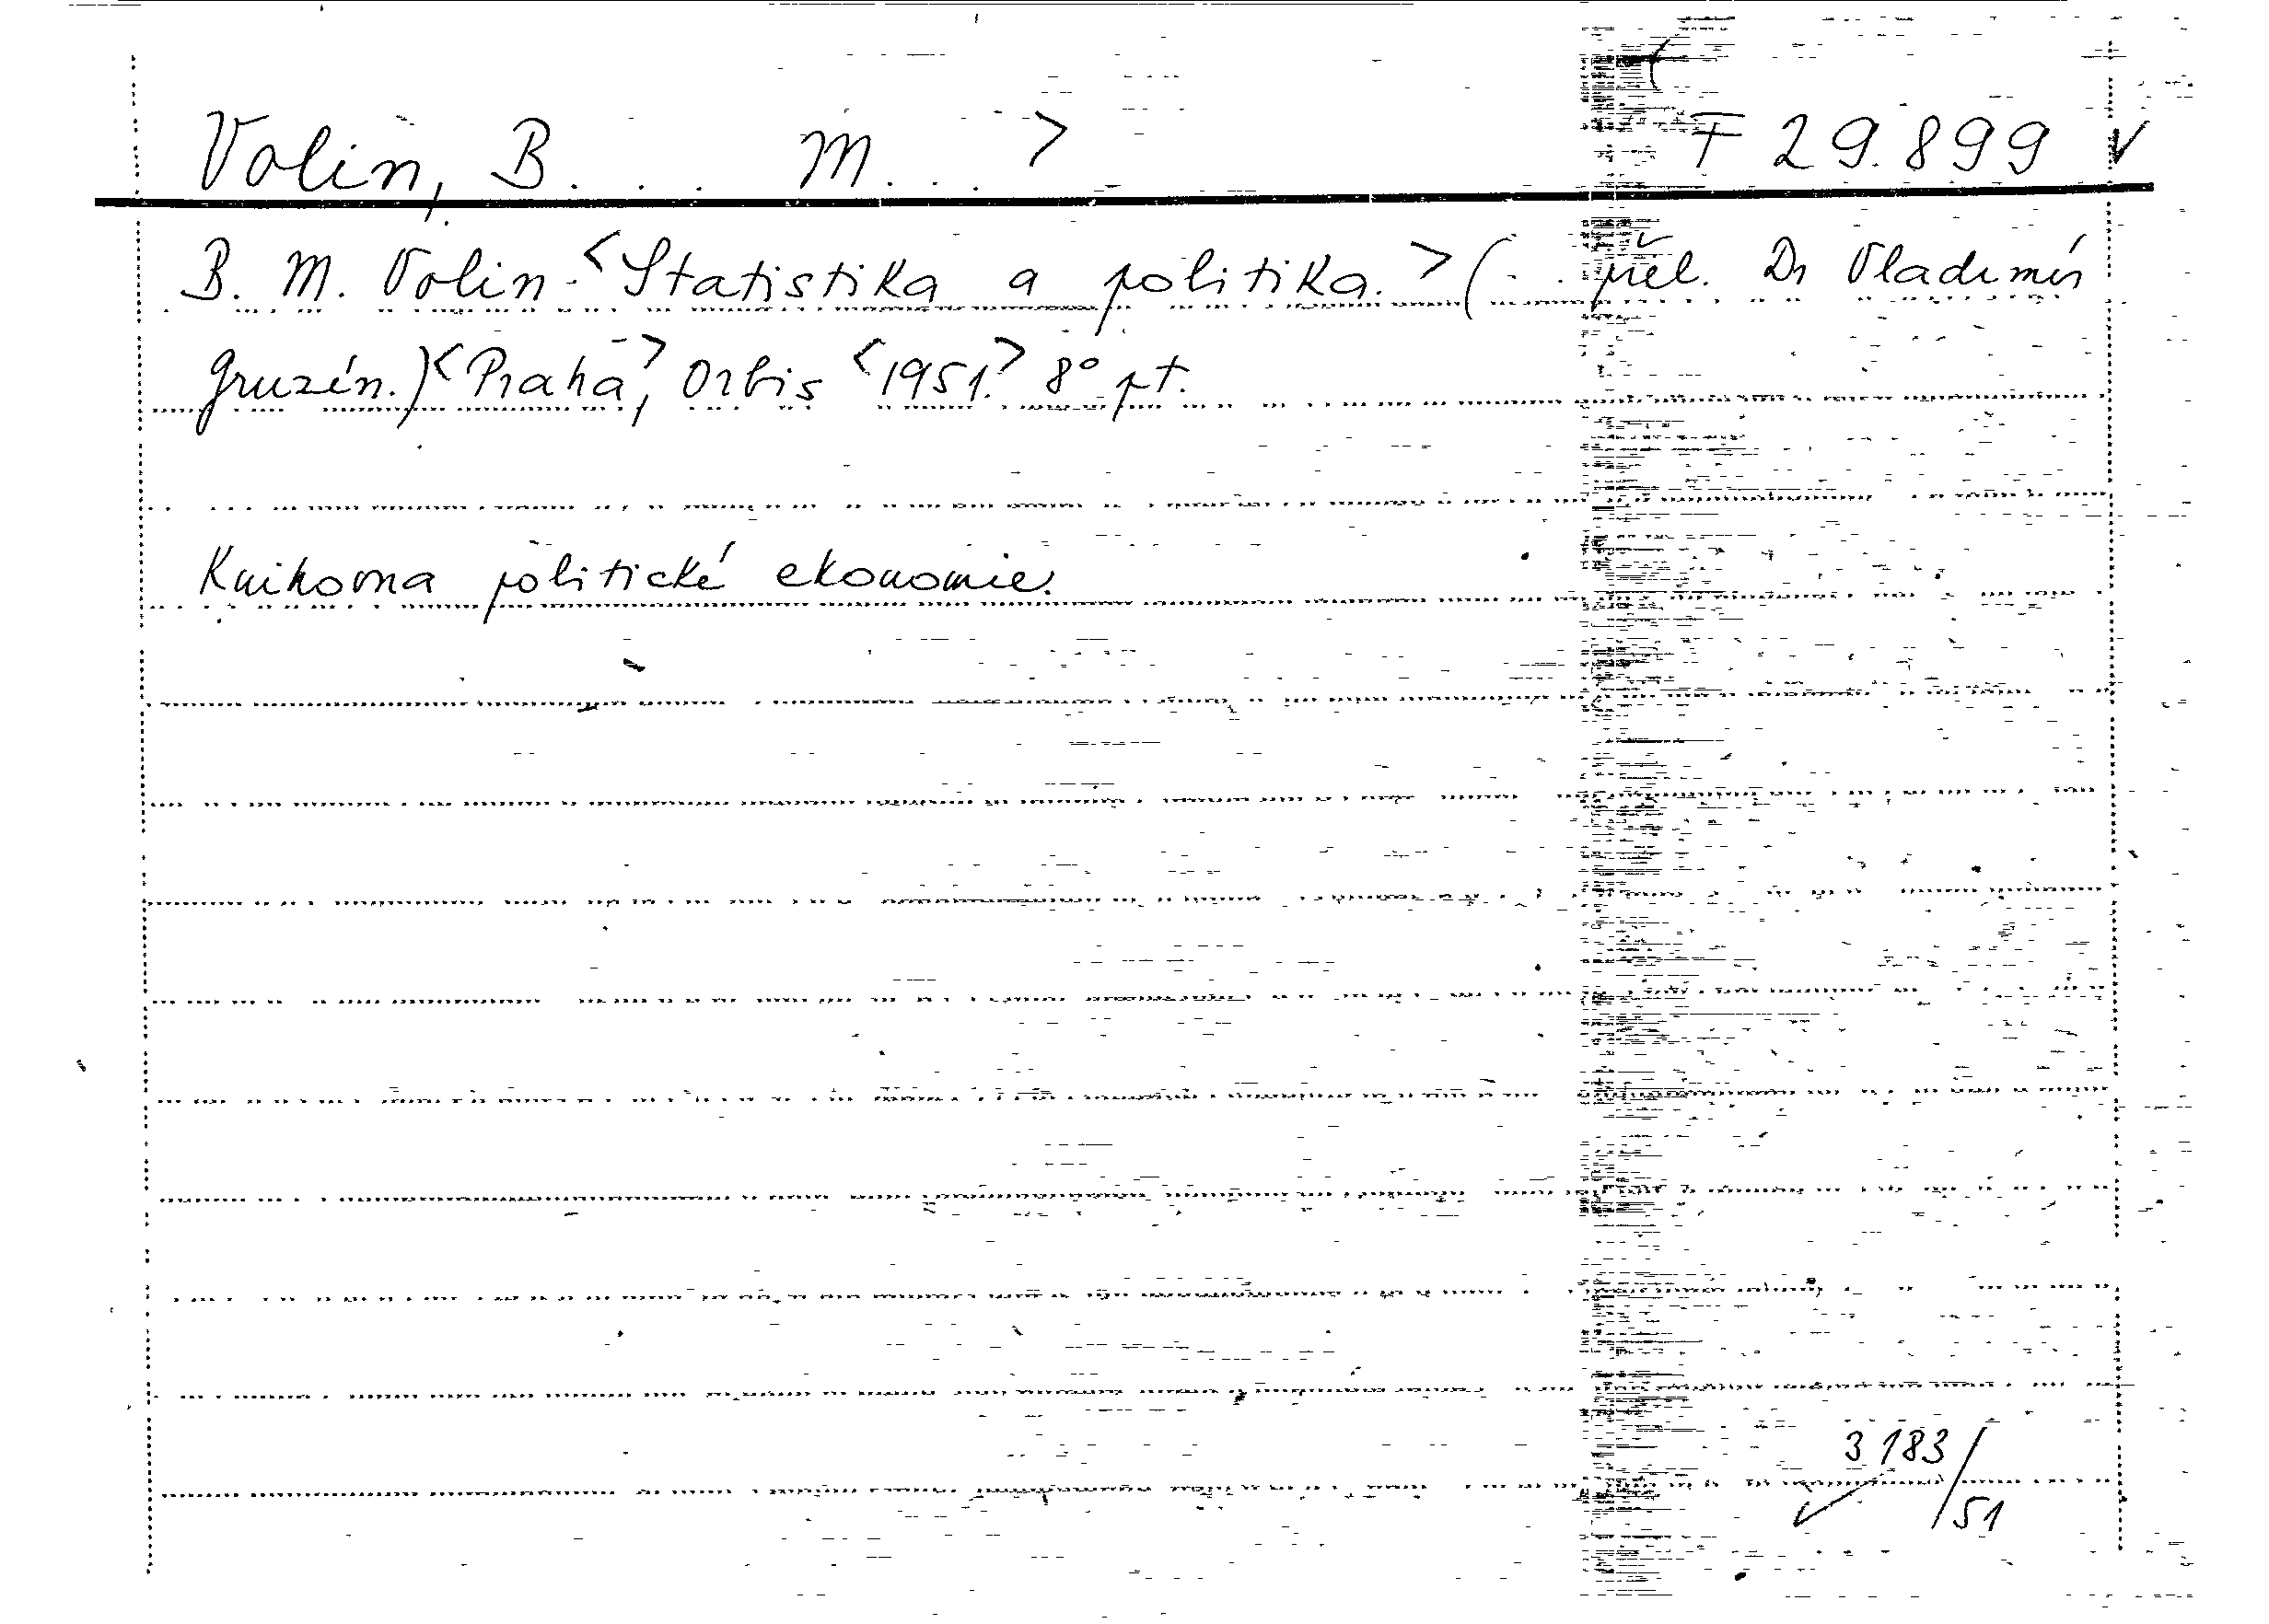 Volin, B... M...> F 29.899 ✓
B. M. Volin. <Statistika a politika.> (.. přel. Dr Vladimír
Gruzín.) <Praha>, Orbis <1951.> 8° pt.
Knihovna politické ekonomie.
3183/51